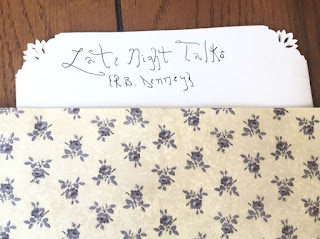 Late Night Talks
{R.B. Kenney}